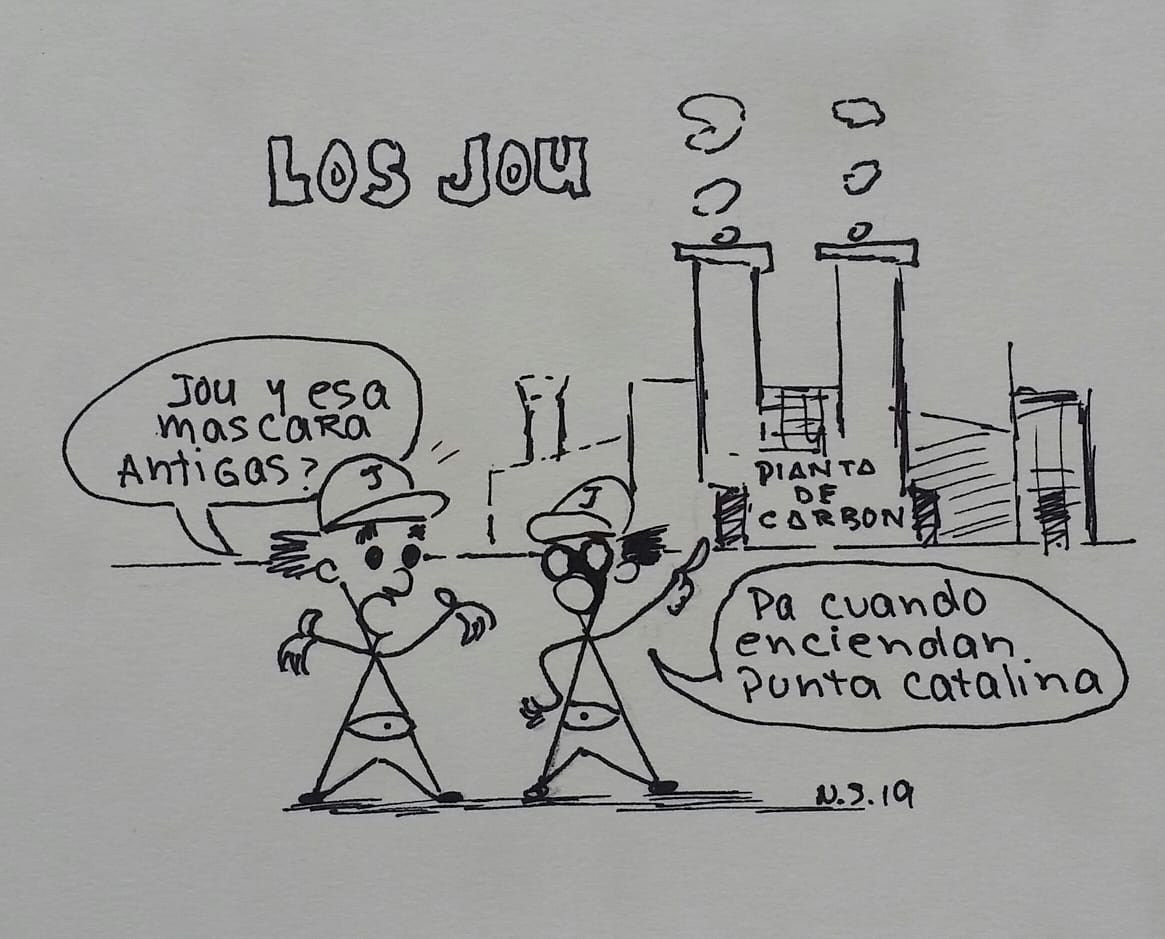 LOS JOU
Jou y esa
mascara
Antigas?
J
J
PIANTA
DE
CARBON
Pa cuando
enciendan
Punta catalina
N.S.19